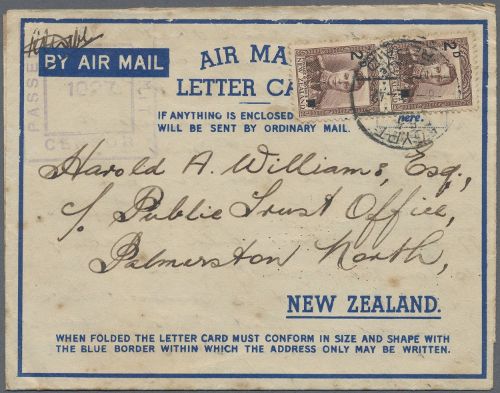 BY AIR MAIL
AIR MA
LETTER CA
IF ANYTHING IS ENCLOSED
WILL BE SENT BY ORDINARY MAIL.
here.
2D 2D
PASSE
CE
EGYPT
Harold A. Williams, Esq.,
c/o Public Trust Office,
Palmerston North,
NEW ZEALAND.
WHEN FOLDED THE LETTER CARD MUST CONFORM IN SIZE AND SHAPE WITH
THE BLUE BORDER WITHIN WHICH THE ADDRESS ONLY MAY BE WRITTEN.